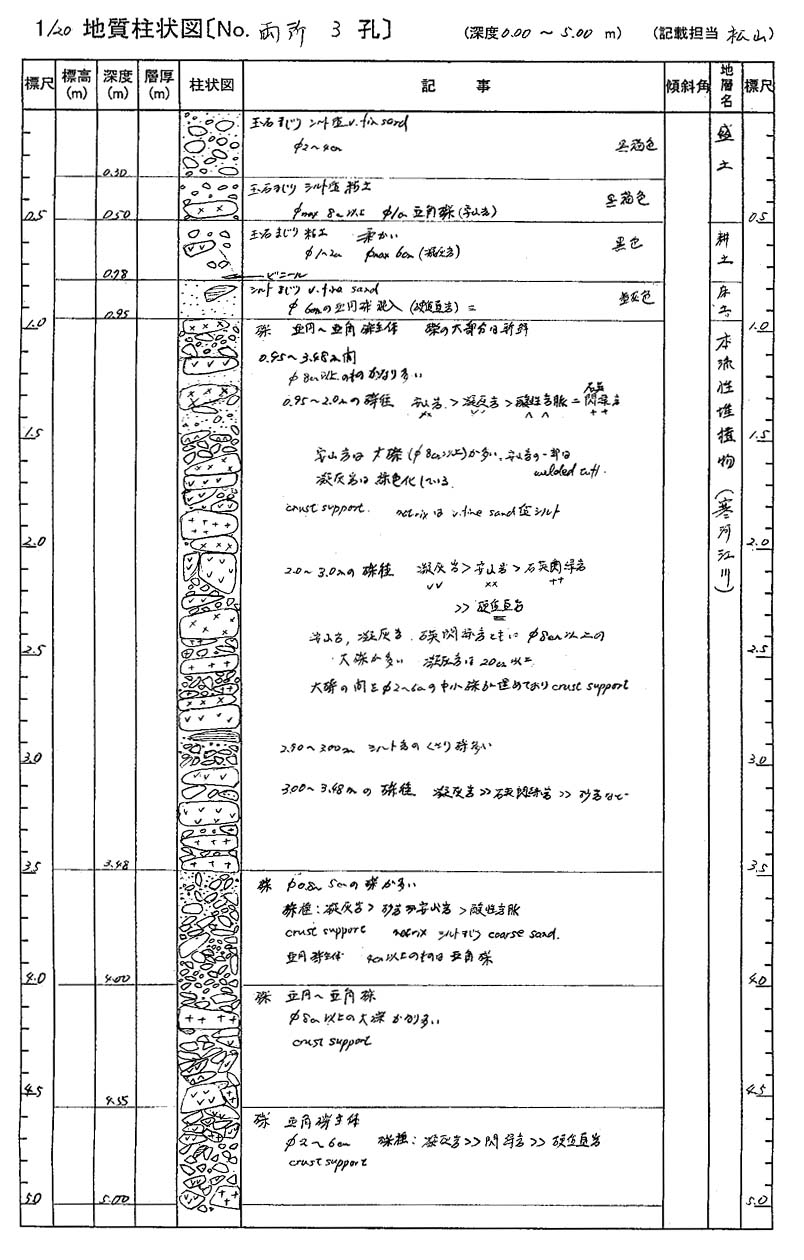 1/20 地質柱状図〔No. 両所 3 孔〕 (深度0.00 ～ 5.00 m) (記載担当 松山)
標尺 標高(m) 深度(m) 層厚(m) 柱状図 記事 傾斜角 地層名 標尺
玉石まじり シルト質 v.fin sand
φ2～4cm 黒褐色
盛土
0.30
玉石まじり シルト質 粘土
φmax 8cm以上 φ1cm 亜角礫(安山岩) 黒褐色
0.5 0.50 0.5
玉石まじり 粘土 柔かい
φ1～2cm φmax 6cm (凝灰岩) 黒色
耕土
0.78 ビニール
シルトまじり v.fine sand
φ6cmの亜円礫混入 (硬質頁岩) =
床土
1.0 0.95 1.0
礫 亜円～亜角礫主体 礫の大部分は新鮮
本流性堆積物(寒河江川)
0.95～3.48m間
φ8cm以上のものかなり多い
0.95～2.0mの礫種 安山岩 > 凝灰岩 > 酸性岩脈 = 石英閃緑岩
1.5 1.5
安山岩は大礫(φ8cm以上)が多い. 安山岩の一部は welded tuff.
凝灰岩は緑色化している.
crust support. matrix は v.fine sand質シルト
2.0 2.0
2.0～3.0mの礫種 凝灰岩 > 安山岩 > 石英閃緑岩
>> 硬質頁岩
安山岩, 凝灰岩, 石英閃緑岩ともに φ8cm以上の
2.5 2.5
大礫が多い 凝灰岩は20cm以上
大礫の間をφ2～6cmの中小礫が埋めており crust support
2.90～3.00m シルト岩のくさり礫多い
3.0 3.0
3.00～3.48mの礫種 凝灰岩 >> 石英閃緑岩 >> 砂岩など
3.5 3.48 3.5
礫 φ0.8～5cmの礫が多い
礫種: 凝灰岩 > 砂岩 安山岩 > 酸性岩脈
crust support matrix シルトまじり coarse sand.
亜円礫主体 4cm以上のものは亜角礫
4.0 4.00 4.0
礫 亜円～亜角礫
φ8cm以上の大礫かなり多い
crust support
4.5 4.55 4.5
礫 亜角礫主体
φ2～6cm 礫種: 凝灰岩 >> 閃緑岩 >> 硬質頁岩
crust support
5.0 5.00 5.0